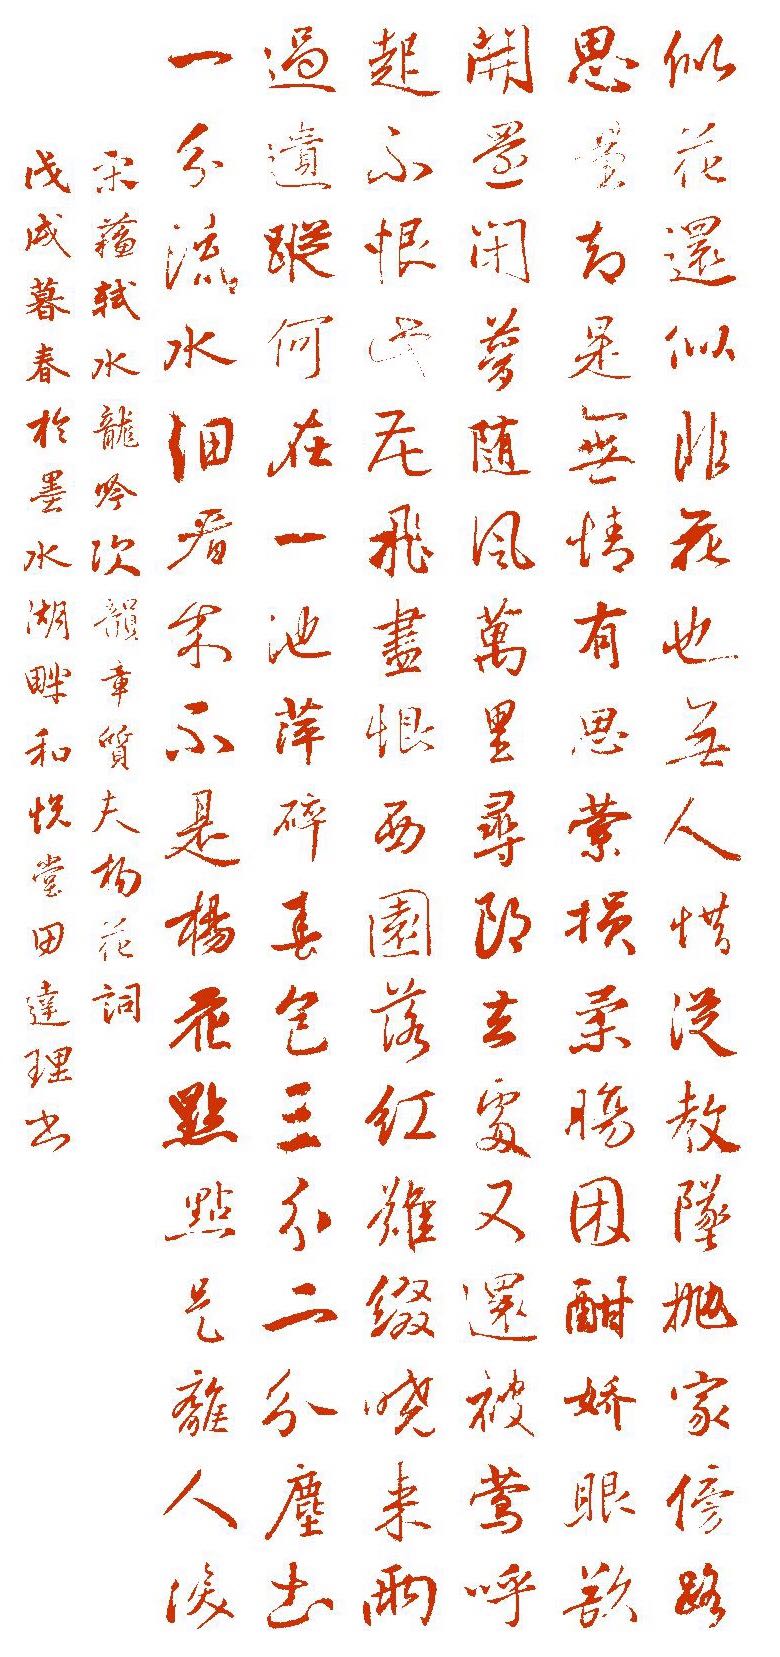 似花還似非花也無人惜從教墜抛家傍路
思量却是無情有思縈損柔腸困酣嬌眼欲
開還閉夢随風萬里尋郎去處又還被鶯呼
起不恨此花飛盡恨西園落紅難綴曉来雨
過遺蹤何在一池萍碎春色三分二分塵土
一分流水細看来不是楊花點點是離人淚
宋蘇軾水龍吟次韻章質夫杨花詞
戊戌暮春於墨水湖畔和悦堂田達理书